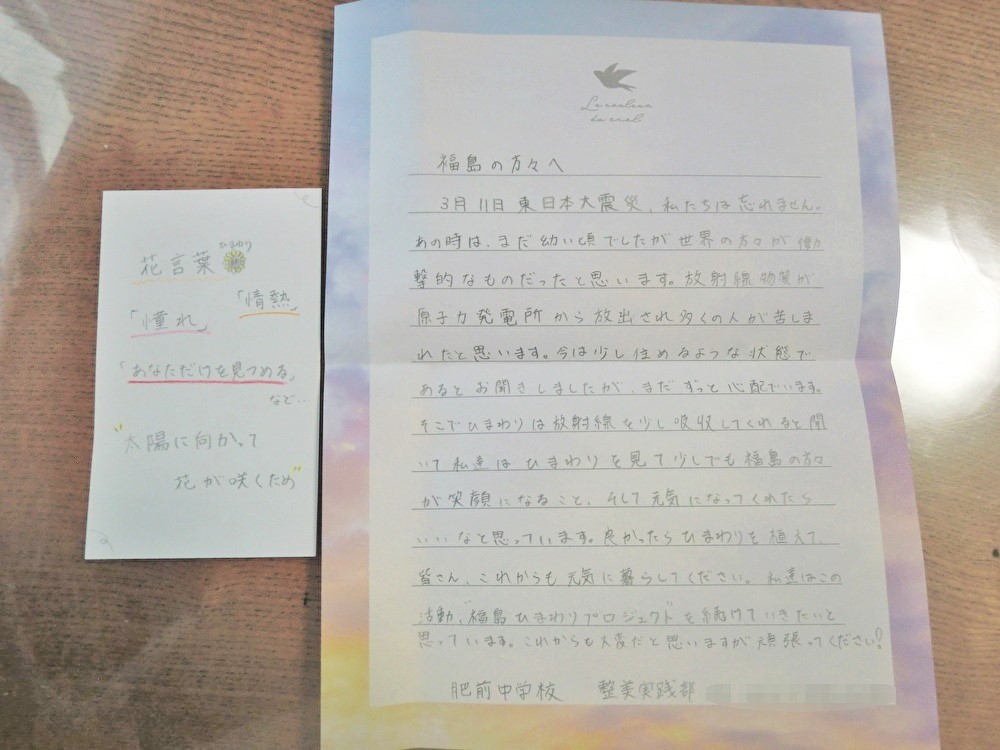 ひまわり
花言葉
「情熱」
「憧れ」
「あなただけを見つめる」
など…
"太陽に向かって
花が咲くため"
La couleur
du ciel
福島の方々へ
3月11日 東日本大震災、私たちは忘れません。
あの時は、まだ幼い頃でしたが世界の方々が衝
撃的なものだったと思います。放射線物質が
原子力発電所から放出され多くの人が苦しま
れたと思います。今は少し住めるような状態で
あるとお聞きしましたが、まだずっと心配でいます。
そこでひまわりは放射線を少し吸収してくれると聞
いて私達はひまわりを見て少しでも福島の方々
が笑顔になること、そして元気になってくれたら
いいなと思っています。良かったらひまわりを植えて、
皆さん、これからも元気に暮らしてください。私達はこの
活動、"福島ひまわりプロジェクト"を続けていきたいと
思っています。これからも大変だと思いますが頑張ってください!
肥前中学校 整美実践部